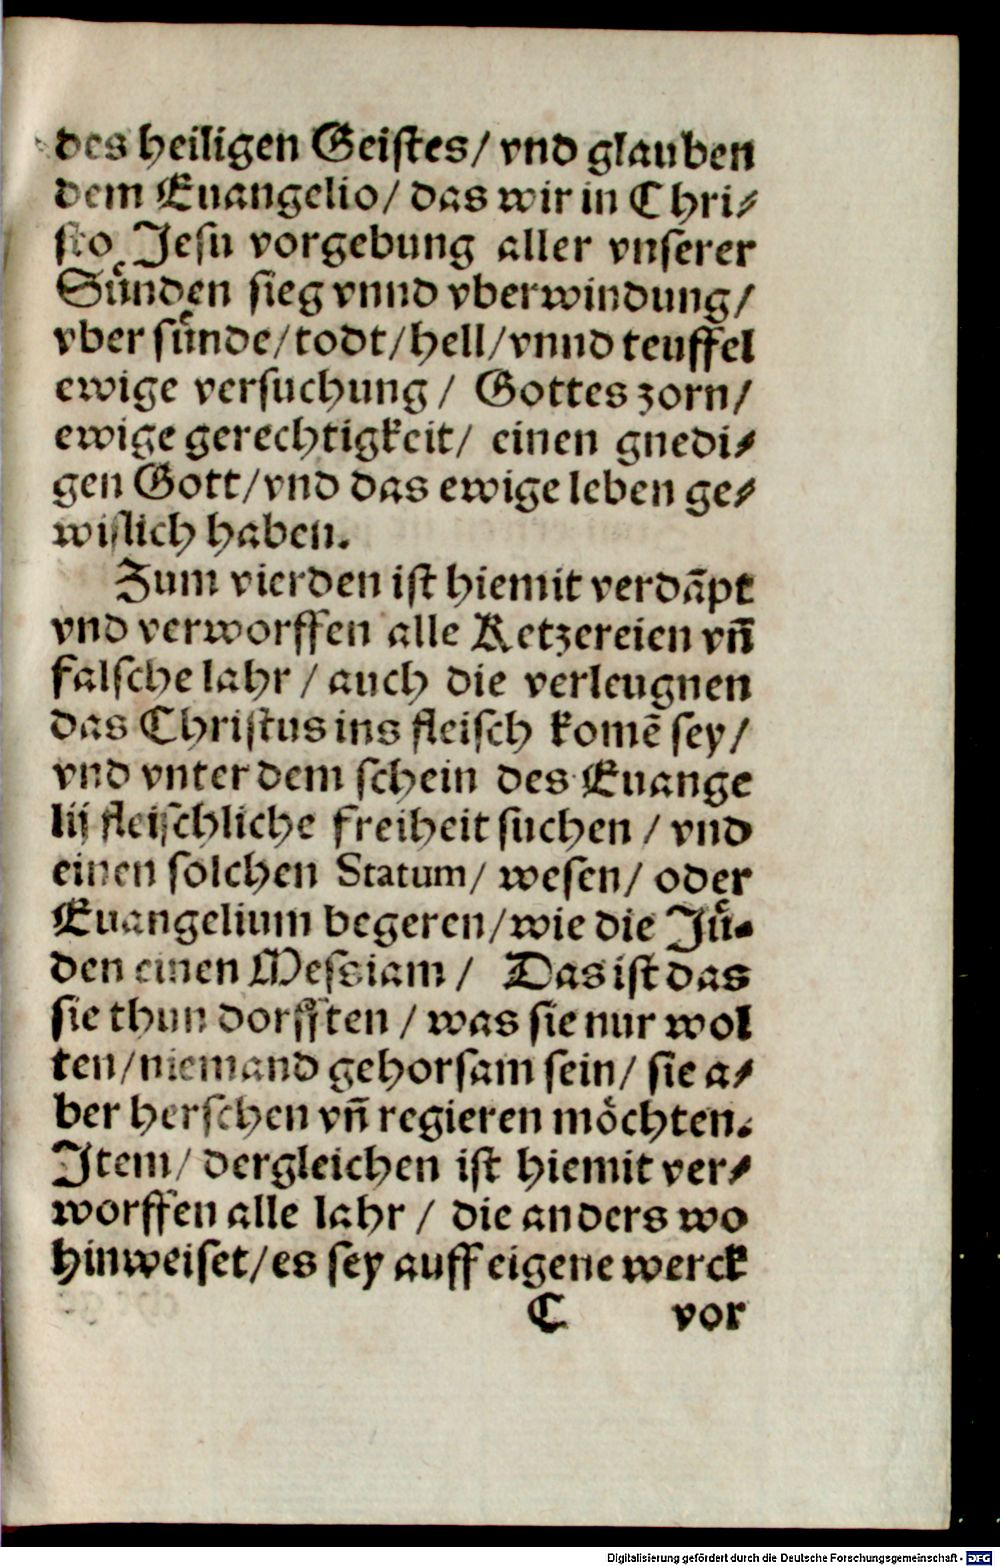 des heiligen Geiſtes/ vnd glauben
dem Euangelio/ das wir in Chri⸗
ſto Jeſu vorgebung aller vnſerer
Suͤnden ſieg vnnd vberwindung/
vber ſuͤnde/todt/hell/vnnd teuffel
ewige verſuchung/ Gottes zorn/
ewige gerechtigkeit/ einen gnedi⸗
gen Gott/vnd das ewige leben ge⸗
wiſlich haben.
Zum vierden iſt hiemit verdãpt
vnd verworffen alle Ketzereien vn̄
falſche lahr / auch die verleugnen
das Chriſtus ins fleiſch komẽ ſey/
vnd vnter dem ſchein des Euange
lij fleiſchliche freiheit ſuchen / vnd
einen ſolchen Statum/ weſen/ oder
Euangelium begeren/wie die Juͤ⸗
den einen Meſsiam / Das iſt das
ſie thun dorfften / was ſie nur wol
ten/niemand gehorſam ſein/ ſie a⸗
ber herſchen vn̄ regieren moͤchten.
Item/ dergleichen iſt hiemit ver⸗
worffen alle lahr / die anders wo
hinweiſet/es ſey auff eigene werck
C vor
Digitalisierung gefördert durch die Deutsche Forschungsgemeinschaft - DFG